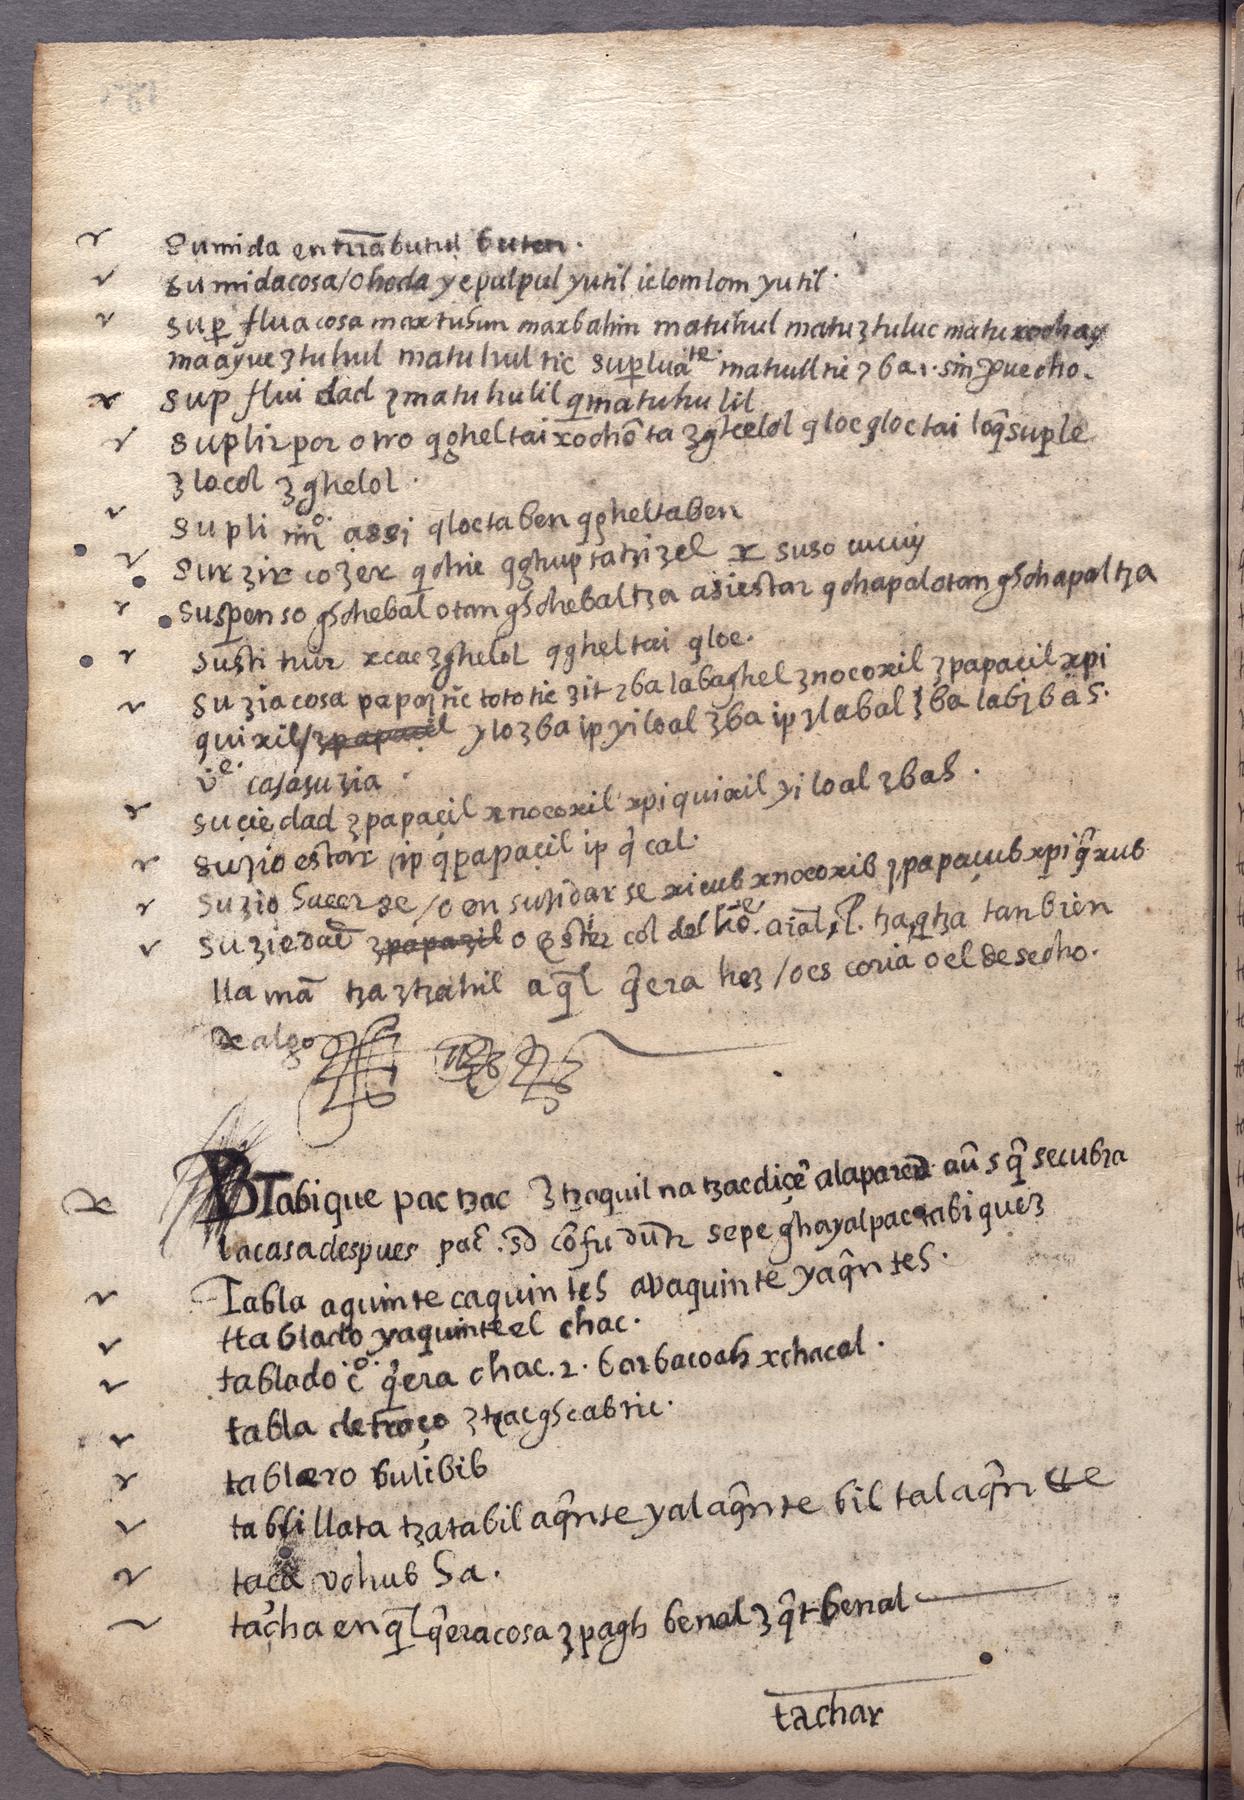 Sumida en trrã butul buten.
sumida cosa / o hoda yepulpul yutil ielomlom yutil.
sup flua cosa maxtuhun maxbahin matuhul matuʒtuluc matu xochay
maayueʒtuhul matuhultic supluáte. matuultic ʒba 1. sin puecho.
sup fluidad ʒmatuhulil qmatuhulil
suplir por otro qgheltai xochõta ʒghelol qloc qloctai loq̃ suple
ʒlocol ʒghelol.
supli mº. assi qloctaben qgheltaben
surʒir coʒer qchic qghuptatziʒel x suso cucuy
suspenso gh̃chebal otan gh̃chebaltza asiestar qchapalotan gh̃chapaltza
sustituir xcac ʒghelol qgheltai qloc.
suʒia cosa papaʒtic tototic ʒit ʒba labaghel ʒnocoxil ʒpapaçil xpi
quixil / ʒpapaçil yloʒba ip yiloal ʒba ip ʒlabal ʒba labʒbas.
vᵉ. casa suʒia.
suçiedad ʒpapaçil xnocoxil xpiquixil yiloal ʒbah.
suʒio estar ip q̃papaçil ip q̃cal.
suʒio hacerse / o en suʒidarse xicub xnocoxib ʒpapaçub xpiq̃xub
suʒiedad ʒpapaʒil o estier col del hõe. aĩal, l. tzaqtza tanbien
llamã tzaʒtzahil aq̃l q̃era heʒ / o escoria o el desecho.
de algo
Tabique pactzac ʒtzaquil na tzac diçẽ ala pared aũs q̃ se cubra
la casa despues pac̃. sd cõfudũtr sepe ghayalpac tabiqueʒ
Tabla aquinte caquintes avaquinte yaq̃ntes.
ttablado yaquinteel chac.
tablado cº. q̃era chac. 2. barbacoah xchacal.
tabla de traço ʒtzacghcabtic.
tablero bulibib
tablillata tzatabil aq̃nte yalaq̃nte bil talaq̃ntte
taça vchub ha.
tacha en q̃lq̃era cosa ʒpagh benal ʒq̃tbenal
tachar